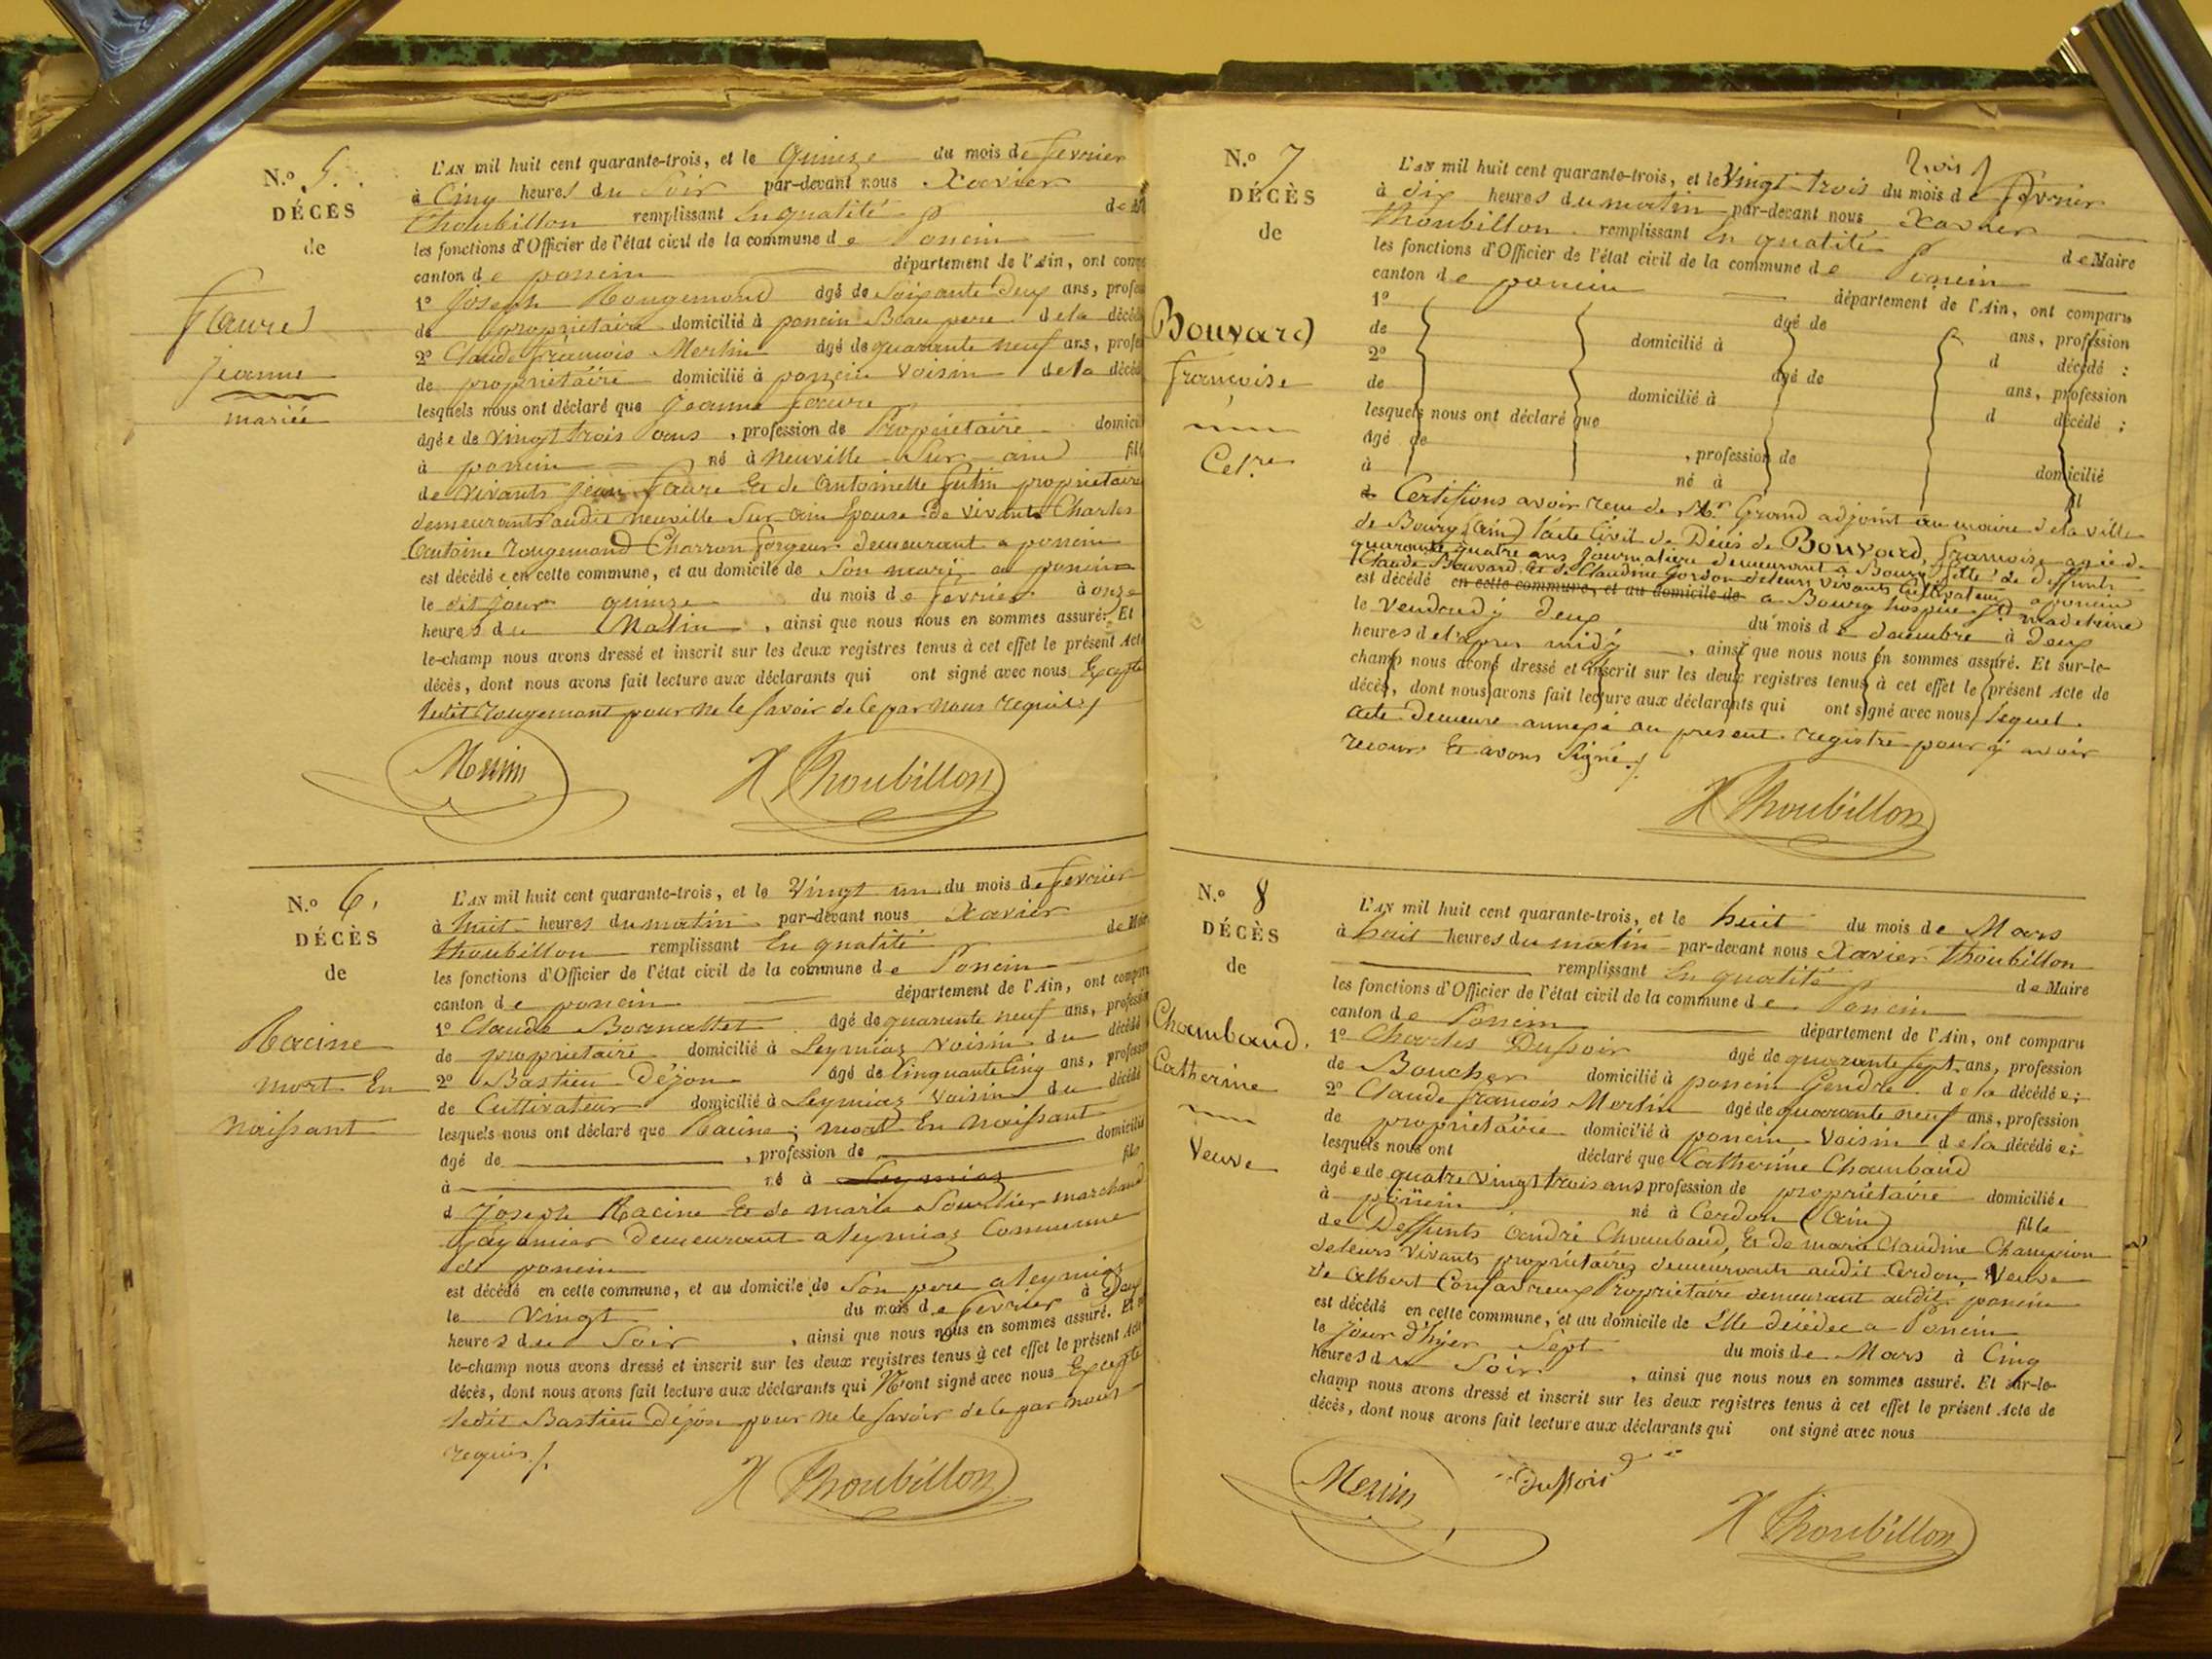 N.o 5.
DÉCÈS
de
faure
jeanne
mariée
L'AN mil huit cent quarante-trois, et le Quinze du mois de fevrier
à Cinq heures du Soir par-devant nous Xavier
Thoubillon remplissant En qualité de
les fonctions d'Officier de l'état civil de la commune de Poncin
canton de poncin département de l'Ain, ont
1o Joseph Rougemond âgé de Soixante deux ans,
de propriétaire domicilié à poncin Beau pere de la
2o Claude françois Merlin âgé de quarante neuf ans,
de propriétaire domicilié à poncin Voisin de la
lesquels nous ont déclaré que Jeanne faure
âgée de vingt trois ans, profession de Propriétaire
à poncin né à Neuville Sur ain
de vivants jean faure Et de Antoinette propriétaire
demeurants audit neuville Sur ain Epouse de vivant Charles
Antoine rougemond Charron forgeur demeurant a poncin
est décédée en cette commune, et au domicile de Son mari a poncin
le dit jour quinze du mois de fevrier à onze
heures du Matin, ainsi que nous nous en sommes assuré. Et
le-champ nous avons dressé et inscrit sur les deux registres tenus à cet effet le présent
décès, dont nous avons fait lecture aux déclarants qui ont signé avec nous Excepté
ledit rougemont pour ne le savoir de ce par nous requis
Merlin X Thoubillon
N.o 6.
DÉCÈS
de
Racine
mort En
naissant
L'AN mil huit cent quarante-trois, et le Vingt un du mois de fevrier
à huit heures du matin par-devant nous Xavier
thoubillon remplissant En qualité de
les fonctions d'Officier de l'état civil de la commune de Poncin
canton de poncin département de l'Ain, ont
1o Claude âgé de quarante neuf ans,
de propriétaire domicilié à Leymiaz voisin du décédé
2o Bastien Déjon âgé de Cinquante Cinq ans,
de Cultivateur domicilié à Leymiaz Voisin du décédé
lesquels nous ont déclaré que Racine, mort En naissant
âgé de , profession de domicilié
à né à Leymiaz fils
d Joseph Racine Et de marie marchand
demeurant a leymiaz Commune
de poncin
est décédé en cette commune, et au domicile de Son pere a leymiaz
le Vingt du mois de fevrier à
heures du Soir, ainsi que nous nous en sommes assuré. Et
le-champ nous avons dressé et inscrit sur les deux registres tenus à cet effet le présent
décès, dont nous avons fait lecture aux déclarants qui N'ont signé avec nous Excepté
ledit Bastien Déjon pour ne le savoir de ce par nous
requis
X Thoubillon
N.o 7
DÉCÈS
de
Bouvard
françoise
Cel.re
trois
L'AN mil huit cent quarante-trois, et le Vingt-trois du mois de fevrier
à dix heures du matin par-devant nous Xavier
thoubillon remplissant En qualité de Maire
les fonctions d'Officier de l'état civil de la commune de Poncin
canton de poncin département de l'Ain, ont comparu
1o âgé de ans, profession
de domicilié à d décédé ;
2o âgé de ans, profession
de domicilié à d décédé ;
lesquels nous ont déclaré que
âgé de , profession de domicilié
à né à fil
d Certifions avoir recu de Mr Grand adjoint au maire de la ville
de Bourg (ain) l'acte Civil de Décès de Bouvard, françoise agée de
quarante quatre ans Journaliere demeurant a Bourg fille de deffunts
Claude Bouvard Et de Claudine de leurs vivants Cultivateurs a poncin
est décédé en cette commune, et au domicile de a Bourg hospice madeleine
le Vendredy deux du mois de decembre à deux
heures de l'apres midy, ainsi que nous nous en sommes assuré. Et sur-le-
champ nous avons dressé et inscrit sur les deux registres tenus à cet effet le présent Acte de
décès, dont nous avons fait lecture aux déclarants qui ont signé avec nous lequel
acte demeure annexé au present registre pour y avoir
recour Et avons Signé
X Thoubillon
N.o 8
DÉCÈS
de
Chambaud.
Catherine
Veuve
L'AN mil huit cent quarante-trois, et le huit du mois de Mars
à huit heures du matin par-devant nous Xavier Thoubillon
remplissant En qualité de Maire
les fonctions d'Officier de l'état civil de la commune de Poncin
canton de Poncin département de l'Ain, ont comparu
1o Charles Dussoir âgé de quarante sept ans, profession
de Boucher domicilié à poncin Gendre de la décédée;
2o Claude françois Merlin âgé de quarante neuf ans, profession
de propriétaire domicilié à poncin Voisin de la décédée;
lesquels nous ont déclaré que Catherine Chambaud
âgée de quatre vingt trois ans profession de propriétaire domiciliée
à poncin né à Cerdon (Ain) fille
de Deffunts André Chambaud, Et de marie Claudine Champion
de leurs vivants propriétaires demeurants audit Cerdon, Veuve
de Albert Confavreux Propriétaire demeurant audit poncin
est décédé en cette commune, et au domicile de Elle décédée a Poncin
le jour d'hyer Sept du mois de Mars à Cinq
heures du Soir, ainsi que nous nous en sommes assuré. Et sur-le-
champ nous avons dressé et inscrit sur les deux registres tenus à cet effet le présent Acte de
décès, dont nous avons fait lecture aux déclarants qui ont signé avec nous
Merlin Dussoir
X Thoubillon